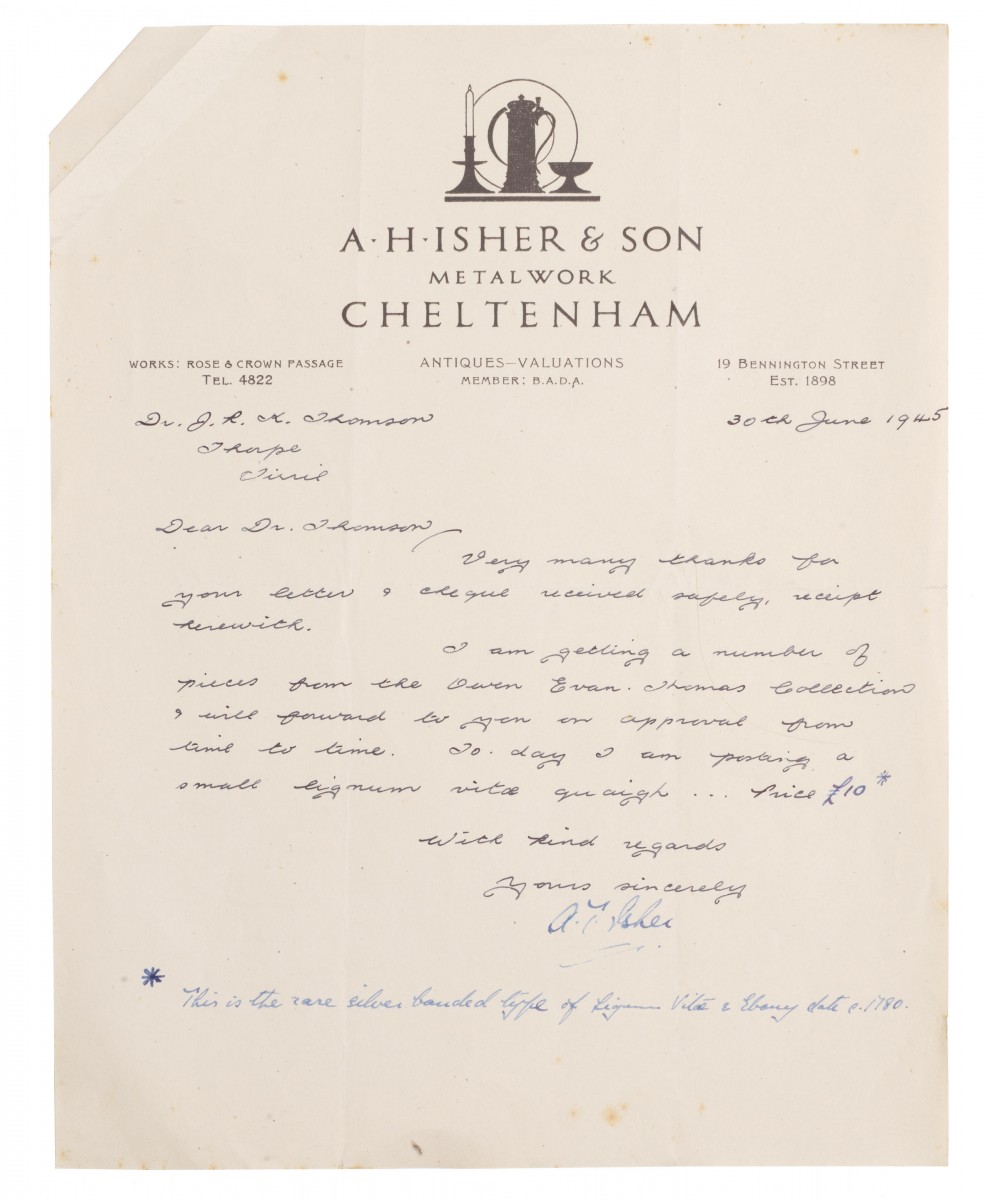 A·H·ISHER & SON
METALWORK
CHELTENHAM
WORKS: ROSE & CROWN PASSAGE
TEL. 4822
ANTIQUES—VALUATIONS
MEMBER: B.A.D.A.
19 BENNINGTON STREET
EST. 1898
Dr. J. R. K. Thomson
Thorpe
Tirril
30th June 1945
Dear Dr. Thomson
Very many thanks for
your letter & cheque received safely, receipt
herewith.
I am getting a number of
pieces from the Owen Evan. Thomas Collection
& will forward to you on approval from
time to time. To.day I am posting a
small lignum vitæ quaigh ... Price £10 *
With kind regards
Yours sincerely
A.T. Isher
* This is the rare silver banded type of Lignum Vitæ & Ebony date c.1780.